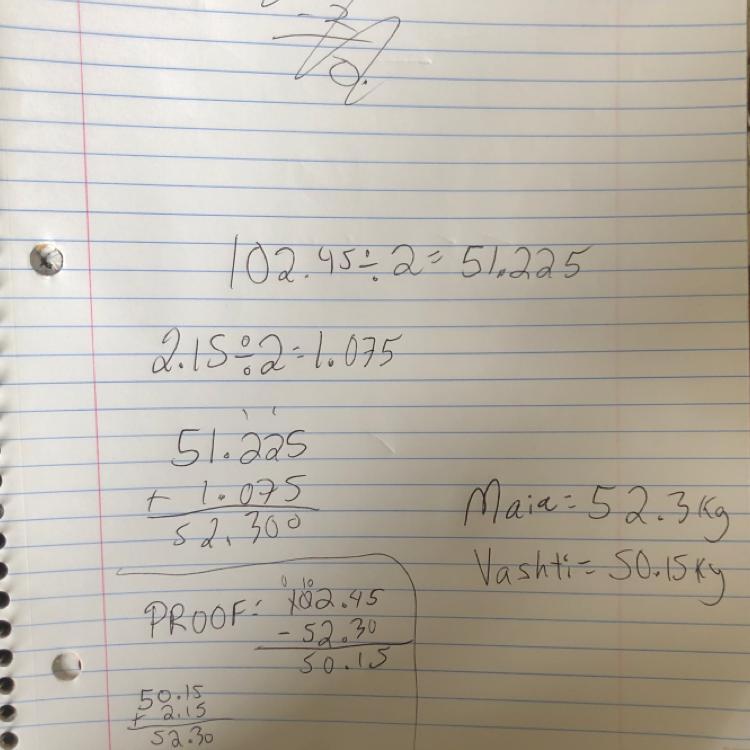 102.45÷2=51.225
2.15÷2=1.075
51.225
+ 1.075
52.300
Maia=52.3Kg
Vashti=50.15Kg
PROOF: 102.45
- 52.30
50.15
50.15
+ 2.15
52.30